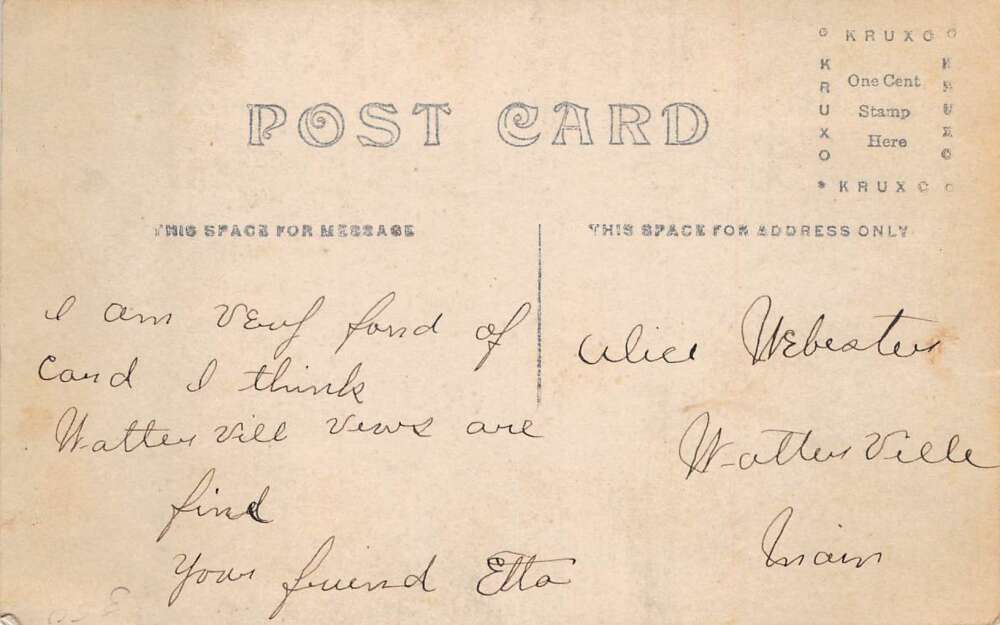 KRUXO
KRUXO
One Cent
Stamp
Here
KRUXO
KRUXO
POST CARD
THIS SPACE FOR MESSAGE
THIS SPACE FOR ADDRESS ONLY
I am very fond of
Card I think
Watter Vill views are
find
Your friend Etta
Alice Webester
Watter Ville
Main